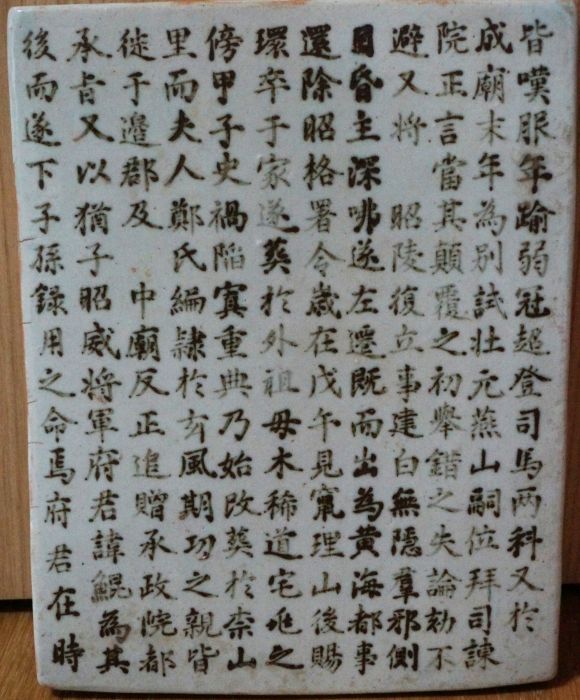 皆嘆服年踰弱冠超登司馬两科又於
成廟末年為別試壯元燕山嗣位拜司諫
院正言當其顛覆之初舉錯之失論劾不
避又將 昭陵復立事建白無隱羣邪側
目昏主深咈遂左遷既而出為黃海都事
還除昭格署令歲在戊午見竄理山後賜
環卒于家遂葬於外祖母木稀道宅兆之
傍甲子史禍陷寘重典乃始改葬於柰山
里而夫人鄭氏編隸於玄風期功之親皆
徙于邊郡及 中廟反正追贈承政院都
承旨又以猶子昭威將軍府君諱鯤為其
後而遂下子孫錄用之命焉府君在時